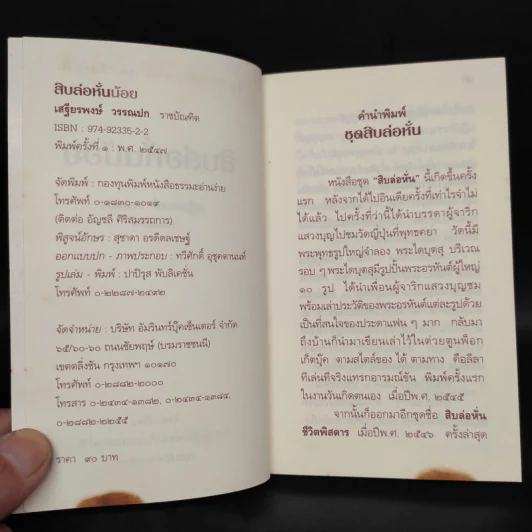 สิบล้อหั่นน้อย
เสฐียรพงษ์ วรรณปก ราชบัณฑิต
ISBN : 974-92335-2-2
พิมพ์ครั้งที่ ๑ : พ.ศ. ๒๕๔๗
จัดพิมพ์ : กองทุนพิมพ์หนังสือธรรมะอ่านง่าย
โทรศัพท์ ๐-๑๘๓๐-๑๐๑๙
(ติดต่อ อัญชลี ศิริสมรรถการ)
พิสูจน์อักษร : สุชาดา อรดีดลเชษฐ์
ออกแบบปก - ภาพประกอบ : ทวีศักดิ์ อุชุคตานนท์
รูปเล่ม - พิมพ์ : ปาปิรุส พับลิเคชัน
โทรศัพท์ ๐-๒๒๘๗-๒๔๙๒
จัดจำหน่าย : บริษัท อัมรินทร์บุ๊คเซ็นเตอร์ จำกัด
๖๕/๖๐-๖๐ ถนนชัยพฤกษ์ (บรมราชชนนี)
เขตตลิ่งชัน กรุงเทพฯ ๑๐๑๗๐
โทรศัพท์ ๐-๒๘๘๒-๒๐๐๐
โทรสาร ๐-๒๔๓๔-๑๓๘๒, ๐-๒๔๓๔-๑๓๘๔,
๐-๒๘๘๒-๒๒๕๕
ราคา ๙๐ บาท
คำนำพิมพ์
ชุดสิบล่อหั่น
หนังสือชุด “สิบล่อหั่น” นี้เกิดขึ้นครั้ง
แรก หลังจากได้ไปอินเดียครั้งที่เท่าไรจำไม่
ได้แล้ว ไปครั้งที่ว่านี้ได้นำบรรดาผู้จาริก
แสวงบุญไปชมวัดญี่ปุ่นที่พุทธคยา วัดนี้มี
พระพุทธรูปใหญ่จำลอง พระไดบุตสุ บริเวณ
รอบ ๆ พระไดบุตสุมีรูปปั้นพระอรหันต์ผู้ใหญ่
๑๐ รูป ได้นำเพื่อนผู้จาริกแสวงบุญชม
พร้อมเล่าประวัติของพระอรหันต์แต่ละรูปด้วย
เป็นที่สนใจของประดาแฟน ๆ มาก กลับมา
ถึงบ้านก็นำมาเขียนเล่าไว้ในต่วยตูนพ็อก
เก็ตบุ๊ค ตามสไตล์ของ ไต้ ตามทาง คือลีลา
ทีเล่นทีจริงแทรกอารมณ์ขัน พิมพ์ครั้งแรก
ในงานวันเกิดตนเอง เมื่อปีพ.ศ. ๒๕๔๕
จากนั้นก็ออกมาอีกชุดชื่อ สิบล่อหั่น
ชีวิตพิสดาร เมื่อปีพ.ศ. ๒๕๔๖ ครั้งล่าสุด